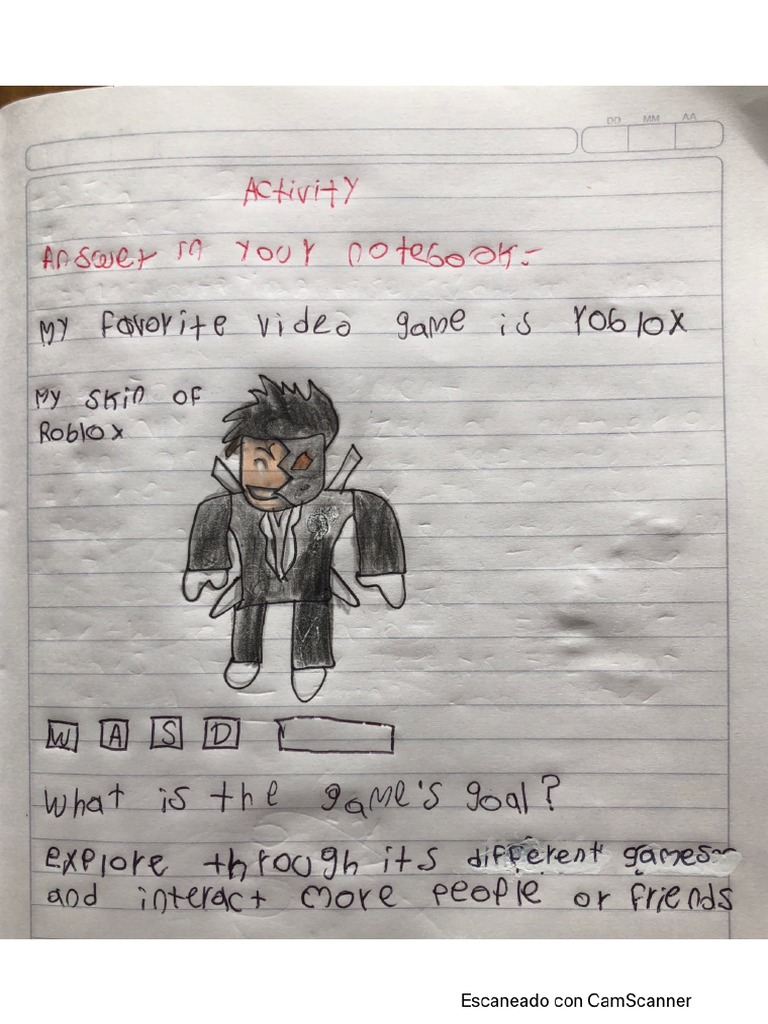 DD MM AA
Activity
Answer in your notebook:-
My favorite video game is roblox
My skin of
Roblox
W A S D
What is the game's goal?
explore through its different games
and interact more people or friends
Escaneado con CamScanner